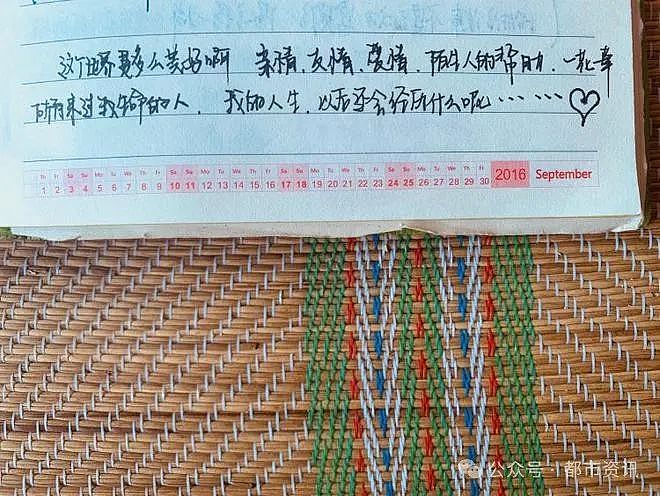 这个世界是多么美好啊 亲情、友情、爱情、陌生人的帮助，一
来过我生命的人. 我的人生，以后还会经历什么呢……♡
Th Fr Sa Su Mo Tu We Th Fr Sa Su Mo Tu We Th Fr Sa Su Mo Tu We Th Fr Sa Su Mo Tu We Th Fr
1 2 3 4 5 6 7 8 9 10 11 12 13 14 15 16 17 18 19 20 21 22 23 24 25 26 27 28 29 30 2016 September
公众号·都市资讯